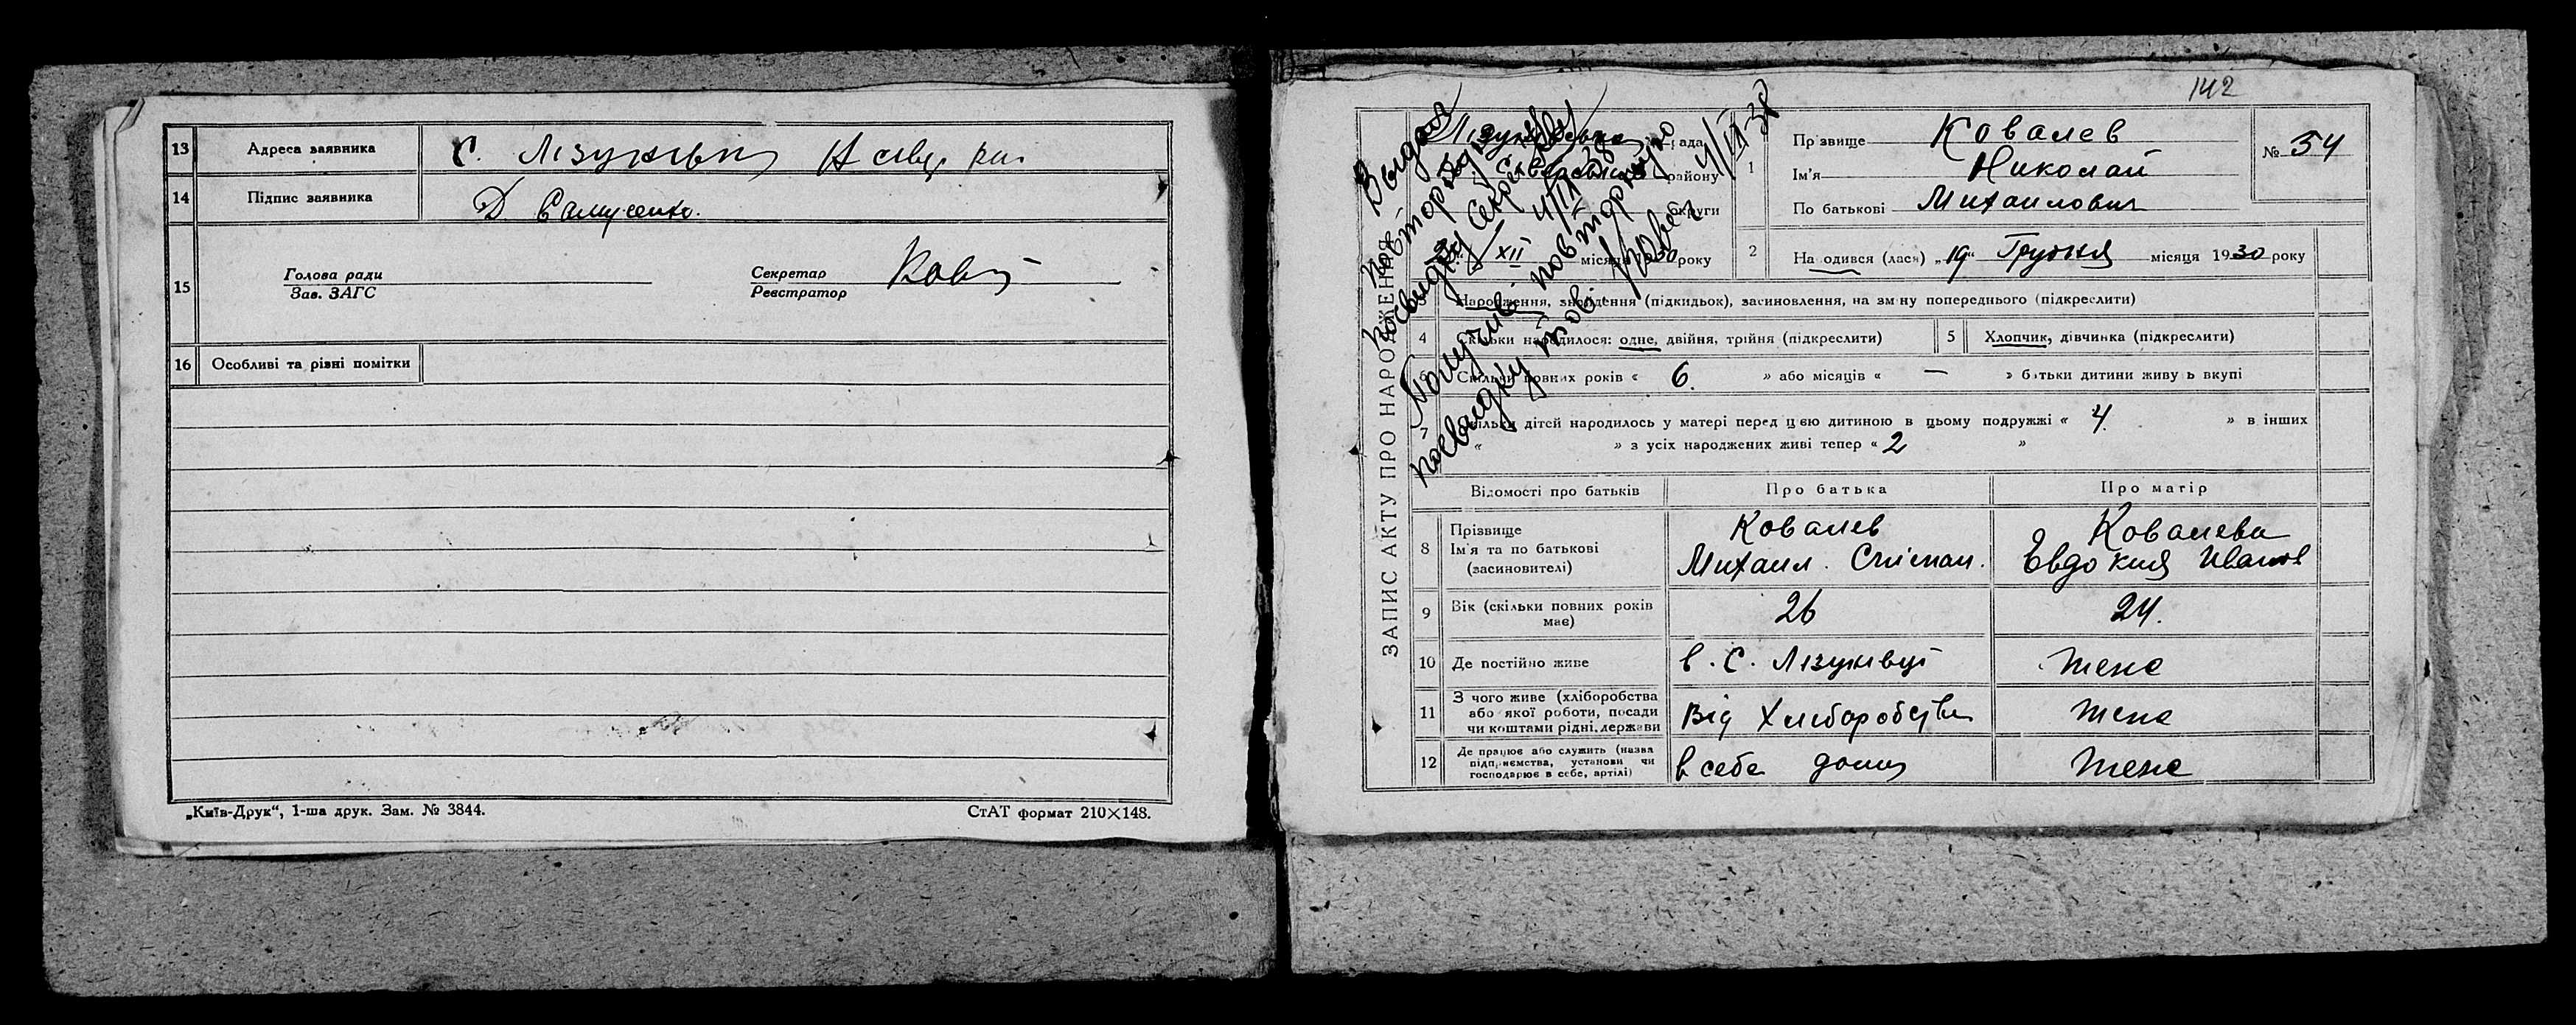 13 Адреса заявника С. Лізунівка
14 Підпис заявника Д. Самусенко.
15 Голова ради
Зав. ЗАГС
Секретар
Реєстратор
16 Особливі та різні помітки
„Київ-Друк“, 1-ша друк. Зам. № 3844.
СтАТ формат 210×148.
142
ЗАПИС АКТУ ПРО НАРОДЖЕННЯ
району
округи
XII місяця 1930 року
1 Прізвище Ковалев
Ім'я Николай
По батькові Михаилович
№ 54
2 На одився (лася) „19“ Грудня місяця 1930 року
Народження, знайдення (підкидьок), засиновлення, на зміну попереднього (підкреслити)
4 Скільки народилося: одне, двійня, трійня (підкреслити)
5 Хлопчик, дівчинка (підкреслити)
6 Скільки повних років « 6. » або місяців « — » батьки дитини живуть вкупі
7 Скільки дітей народилось у матері перед цією дитиною в цьому подружжі « 4. » в інших
« » з усіх народжених живі тепер « 2 »
Відомості про батьків Про батька Про матір
8 Прізвище Ковалев Ковалева
Ім'я та по батькові Михаил Евдокия Иванов
(засиновителі)
9 Вік (скільки повних років має) 26 24.
10 Де постійно живе в. С. Лізунівці тене
11 З чого живе (хліборобства
або якої роботи, посади
чи коштами рідні, держави Від Хліборобства тене
12 Де працює або служить (назва
підприємства, установи чи
господарює в себе, артілі) в себе дома тене
Выдан
повторную
4/II 38
Получив повторную